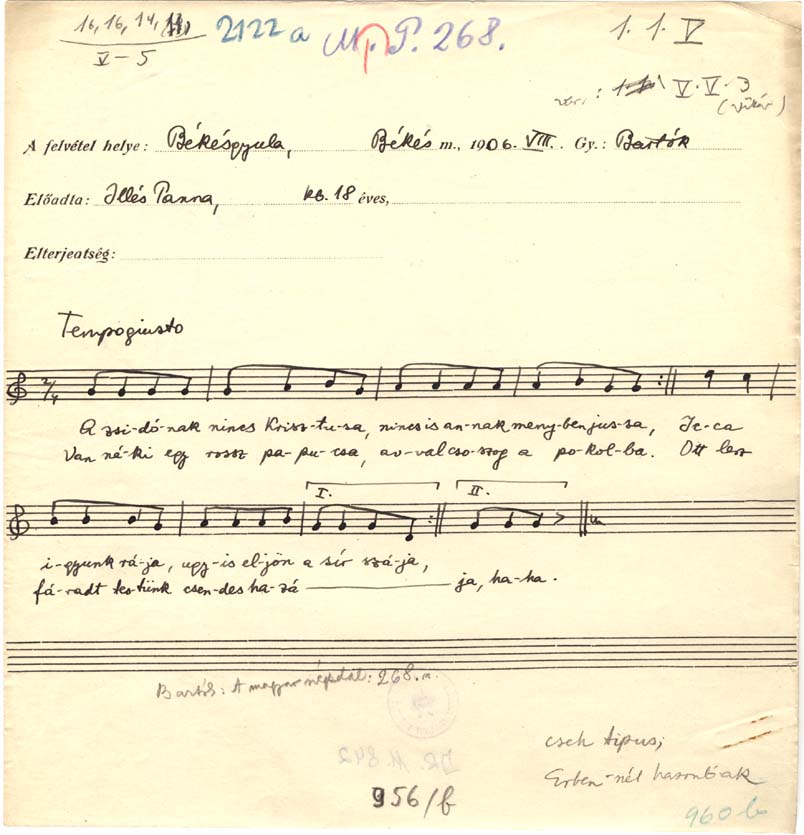 16, 16, 14, 11,
V – 5
2122 a
M. P. 268.
1. 1. V
V. V. 3
(Vikár)
A felvétel helye: Békésgyula, Békés m., 1906. VIII. Gy.: Bartók
Előadta: Illés Panna, kb. 18 éves,
Elterjeatség:
Tempogiusto
2/4
A zsi-dó-nak nincs Krisz-tu-sa, nincs is an-nak meny-ben jus-sa, Je-ca
Van né-ki egy rossz pa-pu-csa, av-val cso-szog a po-kol-ba. Ott lesz
I. II.
i-gyunk rá-ja, ugy-is el-jön a sír szá-ja,
fá-radt tes-tünk csen-des ha-zá ja, ha-ha.
Bartók: A magyar népdal: 268.
956/b
cseh tipus;
Erben-nél hasonlóak
960 b